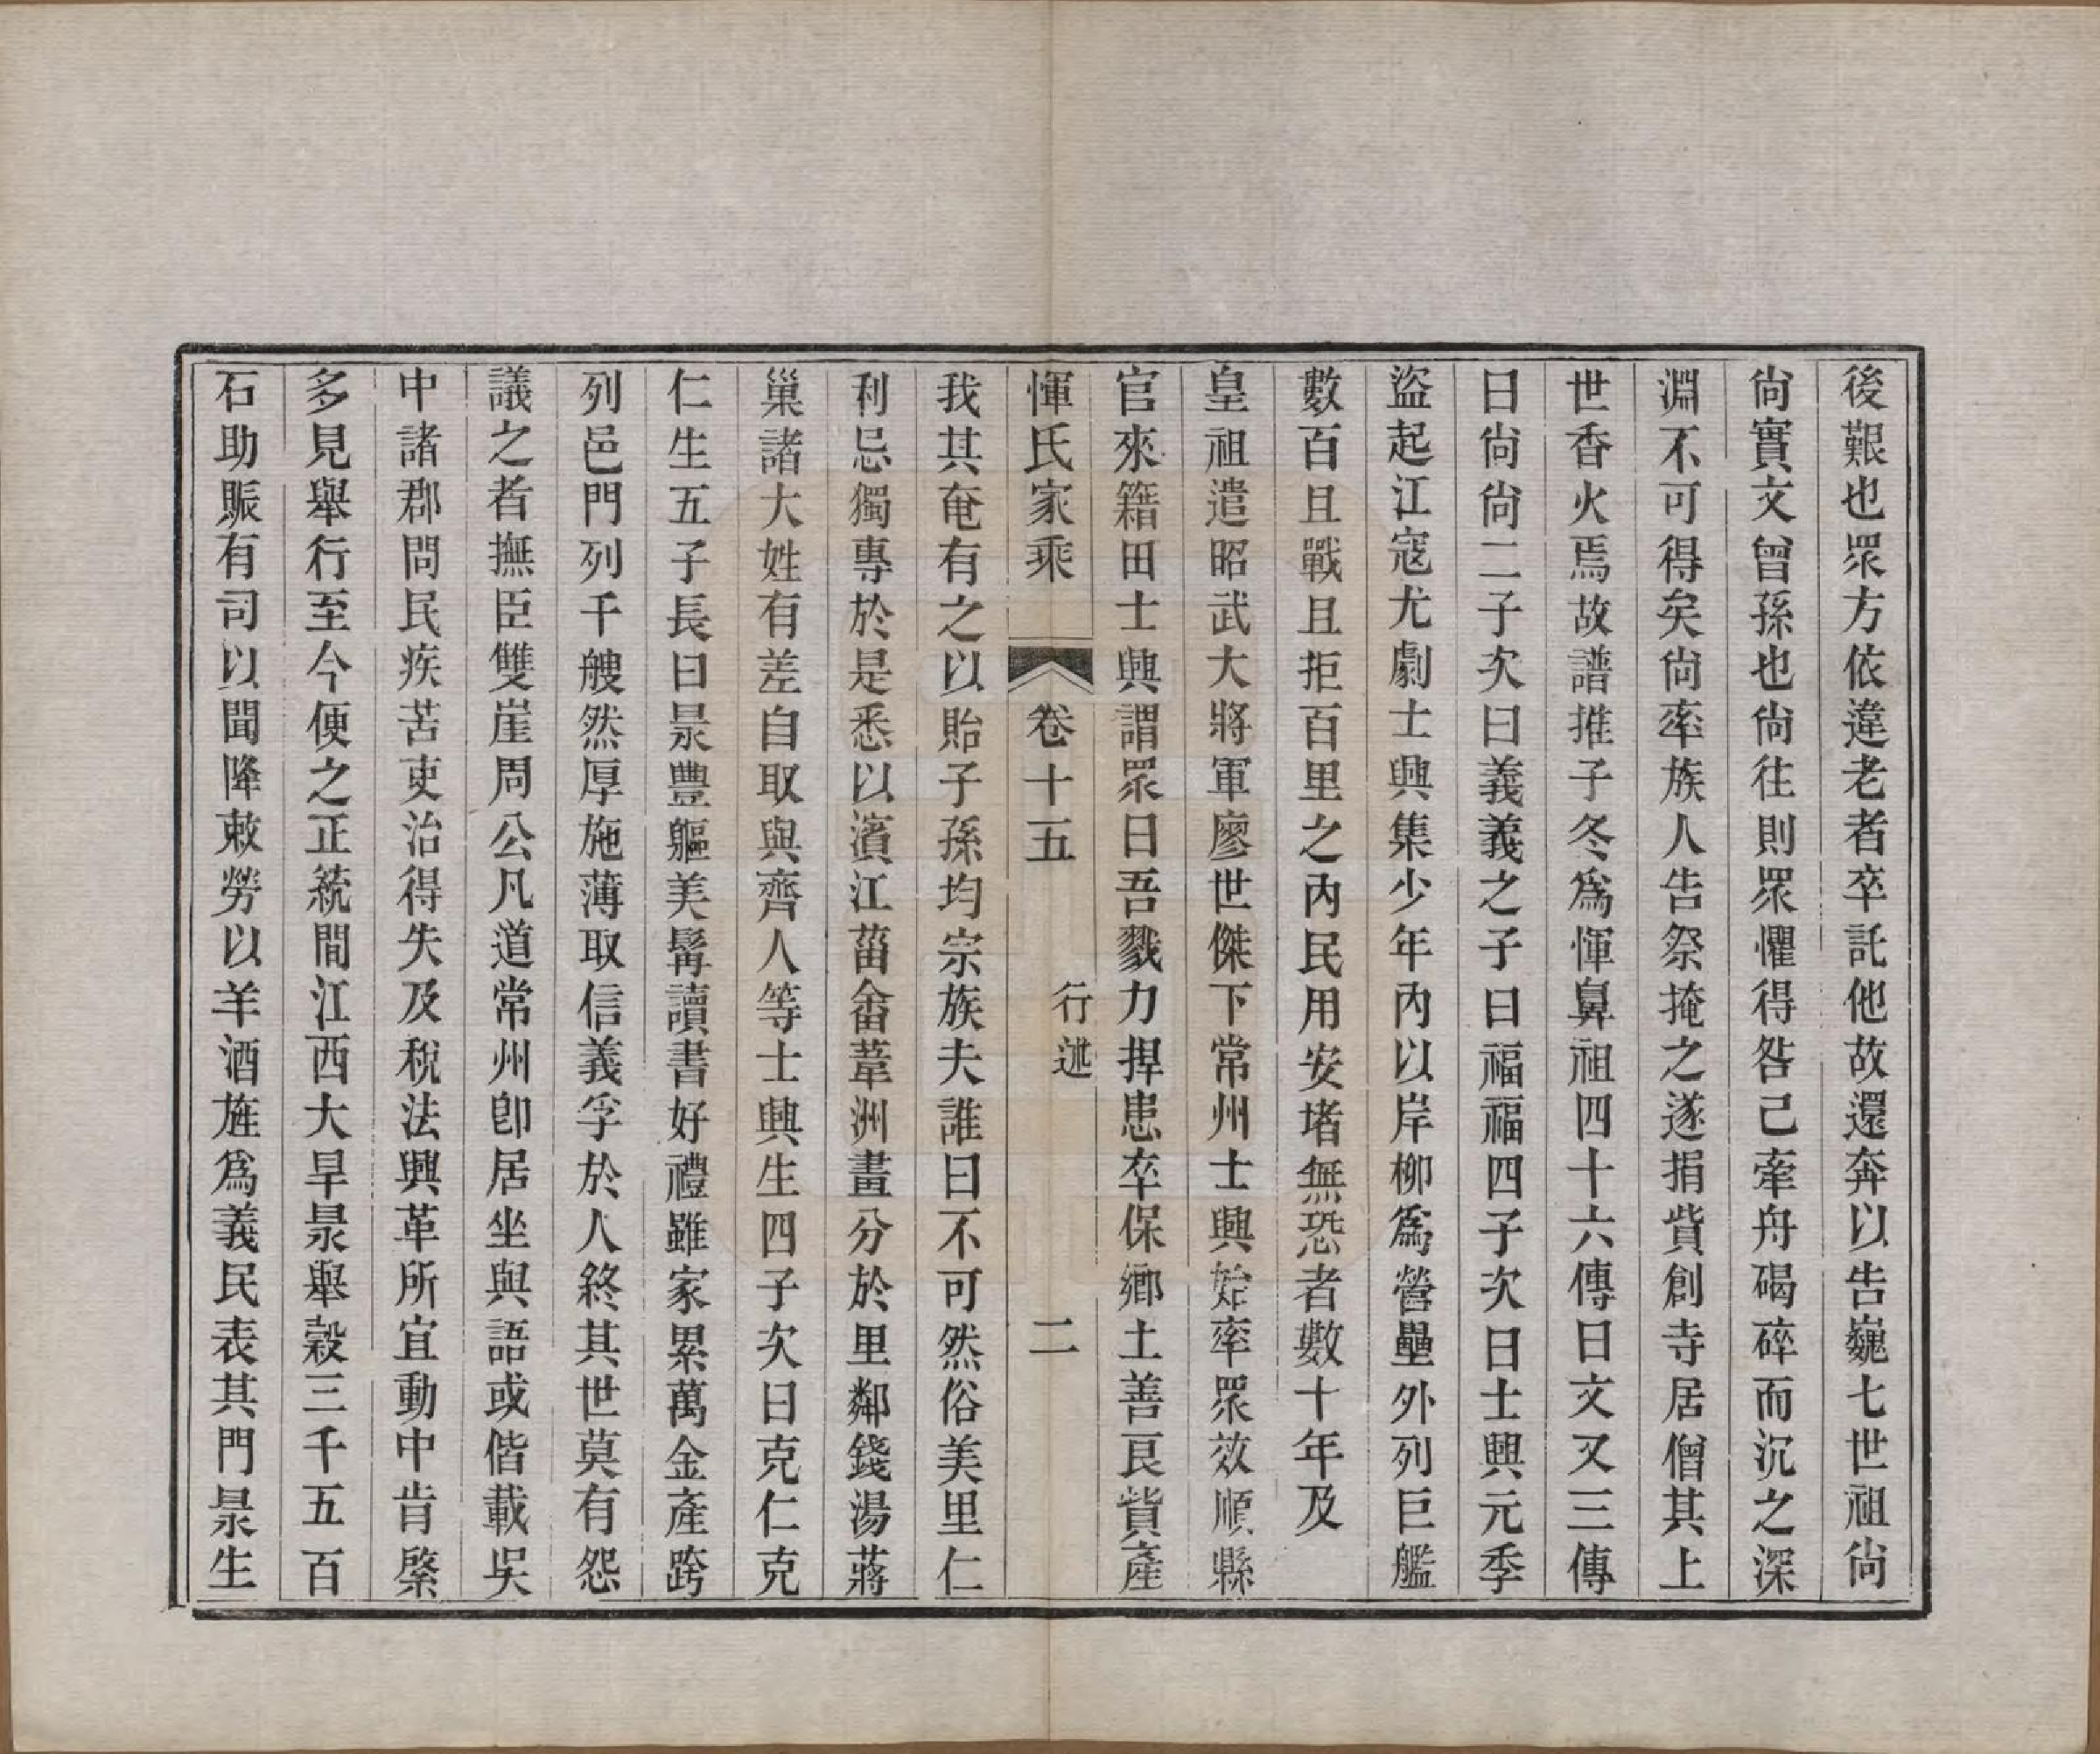 後艱也眾方依違老者卒託他故還奔以告巍七世祖尙
尙實文曾孫也尙往則眾懼得咎己牽舟碣碎而沉之深
淵不可得矣尙率族人告祭掩之遂捐貲創寺居僧其上
世香火焉故譜推子冬爲惲鼻祖四十六傳曰文又三傳
曰尙尙二子次曰義義之子曰福福四子次曰士興元季
盜起江寇尤劇士興集少年內以岸柳爲營壘外列巨艦
數百且戰且拒百里之內民用安堵無恐者數十年及
皇祖遣昭武大將軍廖世傑下常州士興始率眾效順縣
官來籍田士興謂眾曰吾戮力捍患卒保鄉土善良貲產
惲氏家乘 卷十五 行述 二
我其奄有之以貽子孫均宗族夫誰曰不可然俗美里仁
利忌獨專於是悉以濱江菑畬葦洲畫分於里鄰錢湯蔣
巢諸大姓有差自取與齊人等士興生四子次曰克仁克
仁生五子長曰㫤豐軀美髯讀書好禮雖家累萬金產跨
列邑門列千艘然厚施薄取信義孚於人終其世莫有怨
議之者撫臣雙崖周公凡道常州卽居坐與語或偕載吳
中諸郡問民疾苦吏治得失及稅法興革所宜動中肯綮
多見舉行至今便之正統間江西大旱㫤舉穀三千五百
石助賑有司以聞降敕勞以羊酒旌爲義民表其門㫤生